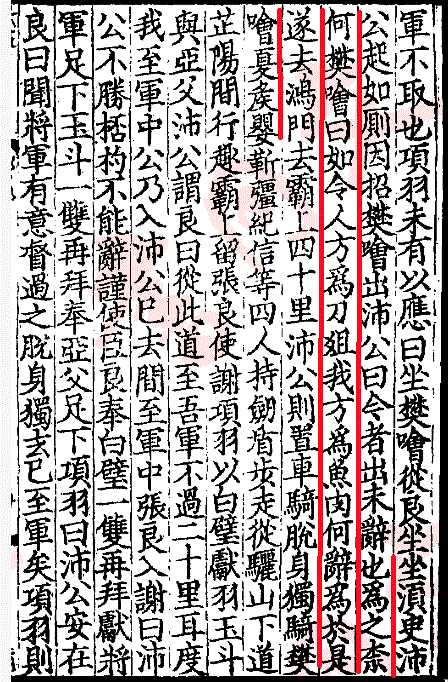 軍不取也項羽未有以應曰坐樊噲從良坐坐湏臾沛
公起如厠因招樊噲出沛公曰今者出未辭也為之奈
何樊噲曰如今人方為刀爼我方為魚肉何辭為於是
遂去鴻門去霸上四十里沛公則置車騎脫身獨騎樊
噲夏矦嬰靳彊紀信等四人持劒盾步走從驪山下道
芷陽間行趣霸上留張良使謝項羽以白璧獻羽玉斗
與亞父沛公謂良曰從此道至吾軍不過二十里耳度
我至軍中公乃入沛公巳去間至軍中張良入謝曰沛
公不勝桮杓不能辭謹使臣良奉白璧一雙再拜獻將
軍足下玉斗一雙再拜奉亞父足下項羽曰沛公安在
良曰聞將軍有意督過之脫身獨去巳至軍矣項羽則